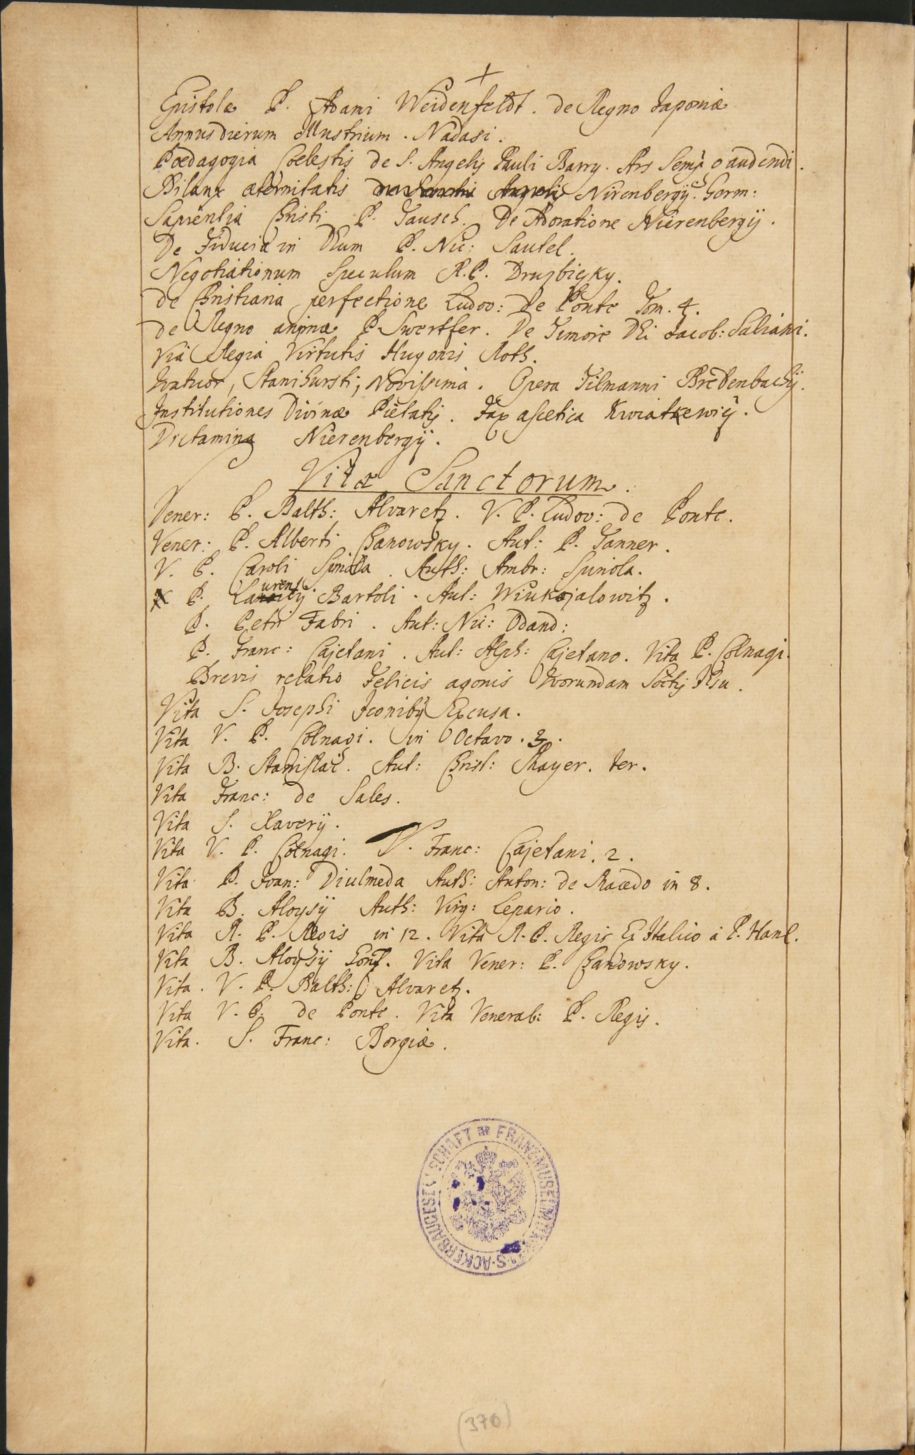 +
Epistolæ P. Adami Weidenfeldt. de Regno Japoniæ
Annus dierum Illustrium. Nadasi.
Pædagogia Cœlestis de S. Angelis Pauli Barry. Ars Semp gaudendi.
Bilanx æternitatis Nirenbergÿ. Germ:
Sapientia Christi P. Tausch. De Adoratione Nierenbergij.
De Fiducia in Deum P. Nic: Sautel.
Negotiationum Speculum R.P. Druzbicky.
de Christiana perfectione Ludov: De Ponte Tom. 4.
de Regno animæ P. Swertfer. De Timore Dei Jacob: Saliani.
Via Regia Virtutis Hugonis Roth.
Quatuor, Stanihursti, Novissima. Opera Tilmanni Bredenbachij.
Institutiones Divinæ Pietatis. Fax ascetica Kwiatkewicÿ.
Dictamina Nierenbergÿ.
Vitæ Sanctorum.
Vener: P. Balth: Alvaretz. V. P. Ludov: de Ponte.
Vener: P. Alberti Chanowsky. Aut: P. Tanner.
V. P. Caroli Spinola. Auth: Ambr: Spinola.
P. Bartoli. Aut: Wiukojalowitz.
P. Petri Fabri. Aut: Nic: Orland:
P. Franc: Cajetani. Aut: Alph: Cajetano. Vita P. Colnagi.
Brevis relatio Felicis agonis Quorundam Soctis Jesu.
Vita S. Josephi Iconibus Excusa.
Vita V. P. Colnagi. in Octavo.
Vita B. Stanislai. Aut: Christ: Mayer. ter.
Vita Franc: de Sales.
Vita S. Xaverij.
Vita V. P. Colnagi. V. Franc: Cajetani. 2.
Vita P. Joan: Diulmeda Auth: Anton: de Macedo in 8.
Vita B. Aloysij Auth: Virg: Cepario.
Vita R. P. Regis in 12. Vita R. P. Regis Ex Italico à P. Hanl.
Vita B. Aloysij Gonz. Vita Vener: P. Chanowsky.
Vita. V. P. Balth: Alvaretz.
Vita V. P. de Ponte. Vita Venerab: P. Regis.
Vita. S. Franc: Borgiæ.
ACKERBAUGESELLSCHAFT FRANZ-MUSEUM
(370)